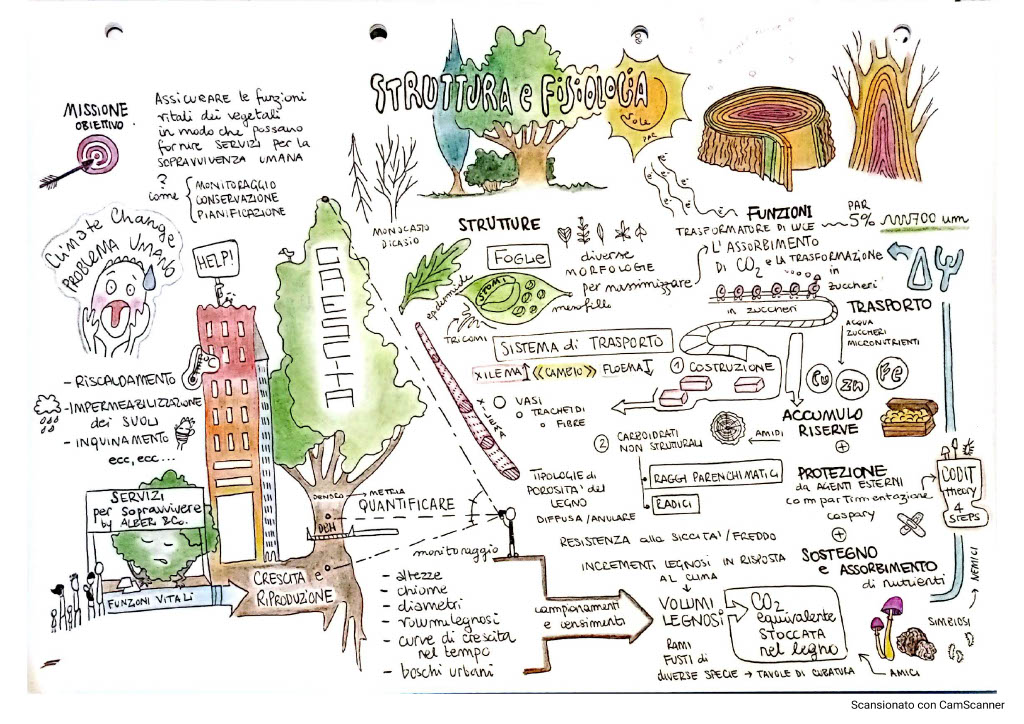 STRUTTURA e FISIOLOGIA
Sole
PAR
MISSIONE
OBIETTIVO
ASSICURARE le funzioni
vitali dei vegetali
in modo che possano
fornire SERVIZI per la
SOPRAVVIVENZA UMANA
?
come
MONITORAGGIO
CONSERVAZIONE
PIANIFICAZIONE
Climate Change
PROBLEMA UMANO
HELP!
- RISCALDAMENTO
- IMPERMEABILIZZAZIONE
dei SUOLI
- INQUINAMENTO
ecc, ecc...
SERVIZI
per Sopravvivere
by ALBERI & Co.
FUNZIONI VITALI
CRESCITA e
RIPRODUZIONE
CRESCITA
DENDRO
METRIA
DBH
QUANTIFICARE
monitoraggio
- altezze
- chiome
- diametri
- volumi legnosi
- curve di crescita
nel tempo
- boschi urbani
campionamenti
e censimenti
MONOCASIO
DICASIO
STRUTTURE
FOGLIE
diverse
MORFOLOGIE
per massimizzare
STOMI
epidermide
mesofilli
TRICOMI
SISTEMA di TRASPORTO
XILEMA
CAMBIO
FLOEMA
VASI
o TRACHEIDI
o FIBRE
TIPOLOGIE di
POROSITA' del
LEGNO
DIFFUSA / ANULARE
e-
e-
e-
e-
FUNZIONI
TRASFORMATORE DI LUCE
PAR
5%
700 um
L'ASSORBIMENTO
DI CO2 e LA TRASFORMAZIONE
in
zuccheri
in zuccheri
TRASPORTO
ACQUA
ZUCCHERI
MICRONUTRIENTI
Cu
Zn
Fe
1 COSTRUZIONE
2 CARBOIDRATI
NON STRUTTURALI
AMIDI
RAGGI PARENCHIMATICI
RADICI
ACCUMULO
RISERVE
+
PROTEZIONE
da AGENTI ESTERNI
compartimentazione
caspary
+
SOSTEGNO
e ASSORBIMENTO
di nutrienti
CODIT
theory
4
STEPS
NEMICI
SIMBIOSI
AMICI
RESISTENZA alla SICCITA' / FREDDO
INCREMENTI LEGNOSI IN RISPOSTA
AL CLIMA
VOLUMI
LEGNOSI
RAMI
FUSTI di
DIVERSE SPECIE → TAVOLE DI CUBATURA
CO2
equivalente
STOCCATA
nel legno
Scansionato con CamScanner